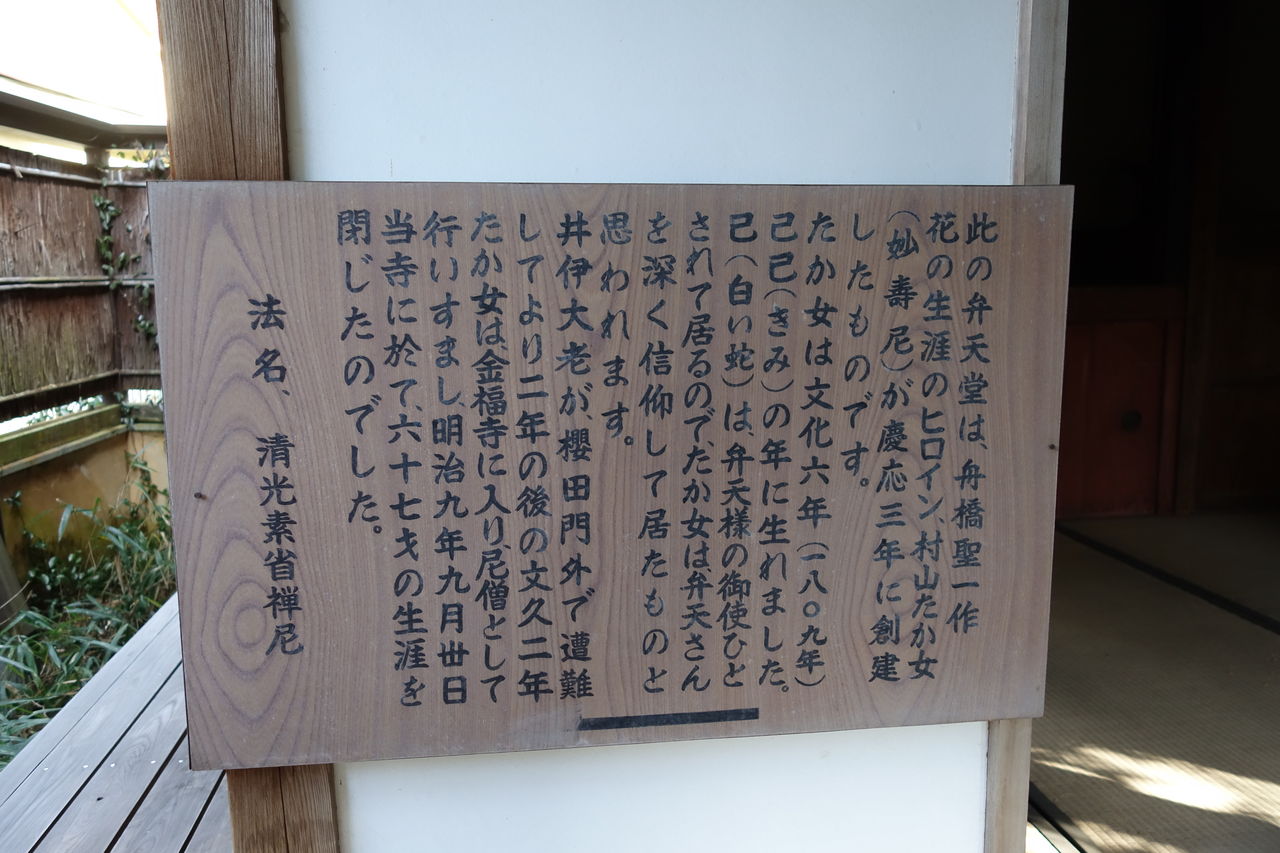 此の弁天堂は、舟橋聖一作
花の生涯のヒロイン、村山たか女
（妙壽尼）が慶応三年に創建
したものです。
たか女は文化六年（一八〇九年）
己巳（きみ）の年に生れました。
巳（白い蛇）は、弁天様の御使ひと
されて居るのでたか女は弁天さん
を深く信仰して居たものと
思われます。
井伊大老が、櫻田門外で遭難
してより二年の後の文久二年
たか女は金福寺に入り、尼僧として
行いすまし、明治九年九月丗日
当寺に於て、六十七才の生涯を
閉じたのでした。
法名、清光素省禅尼